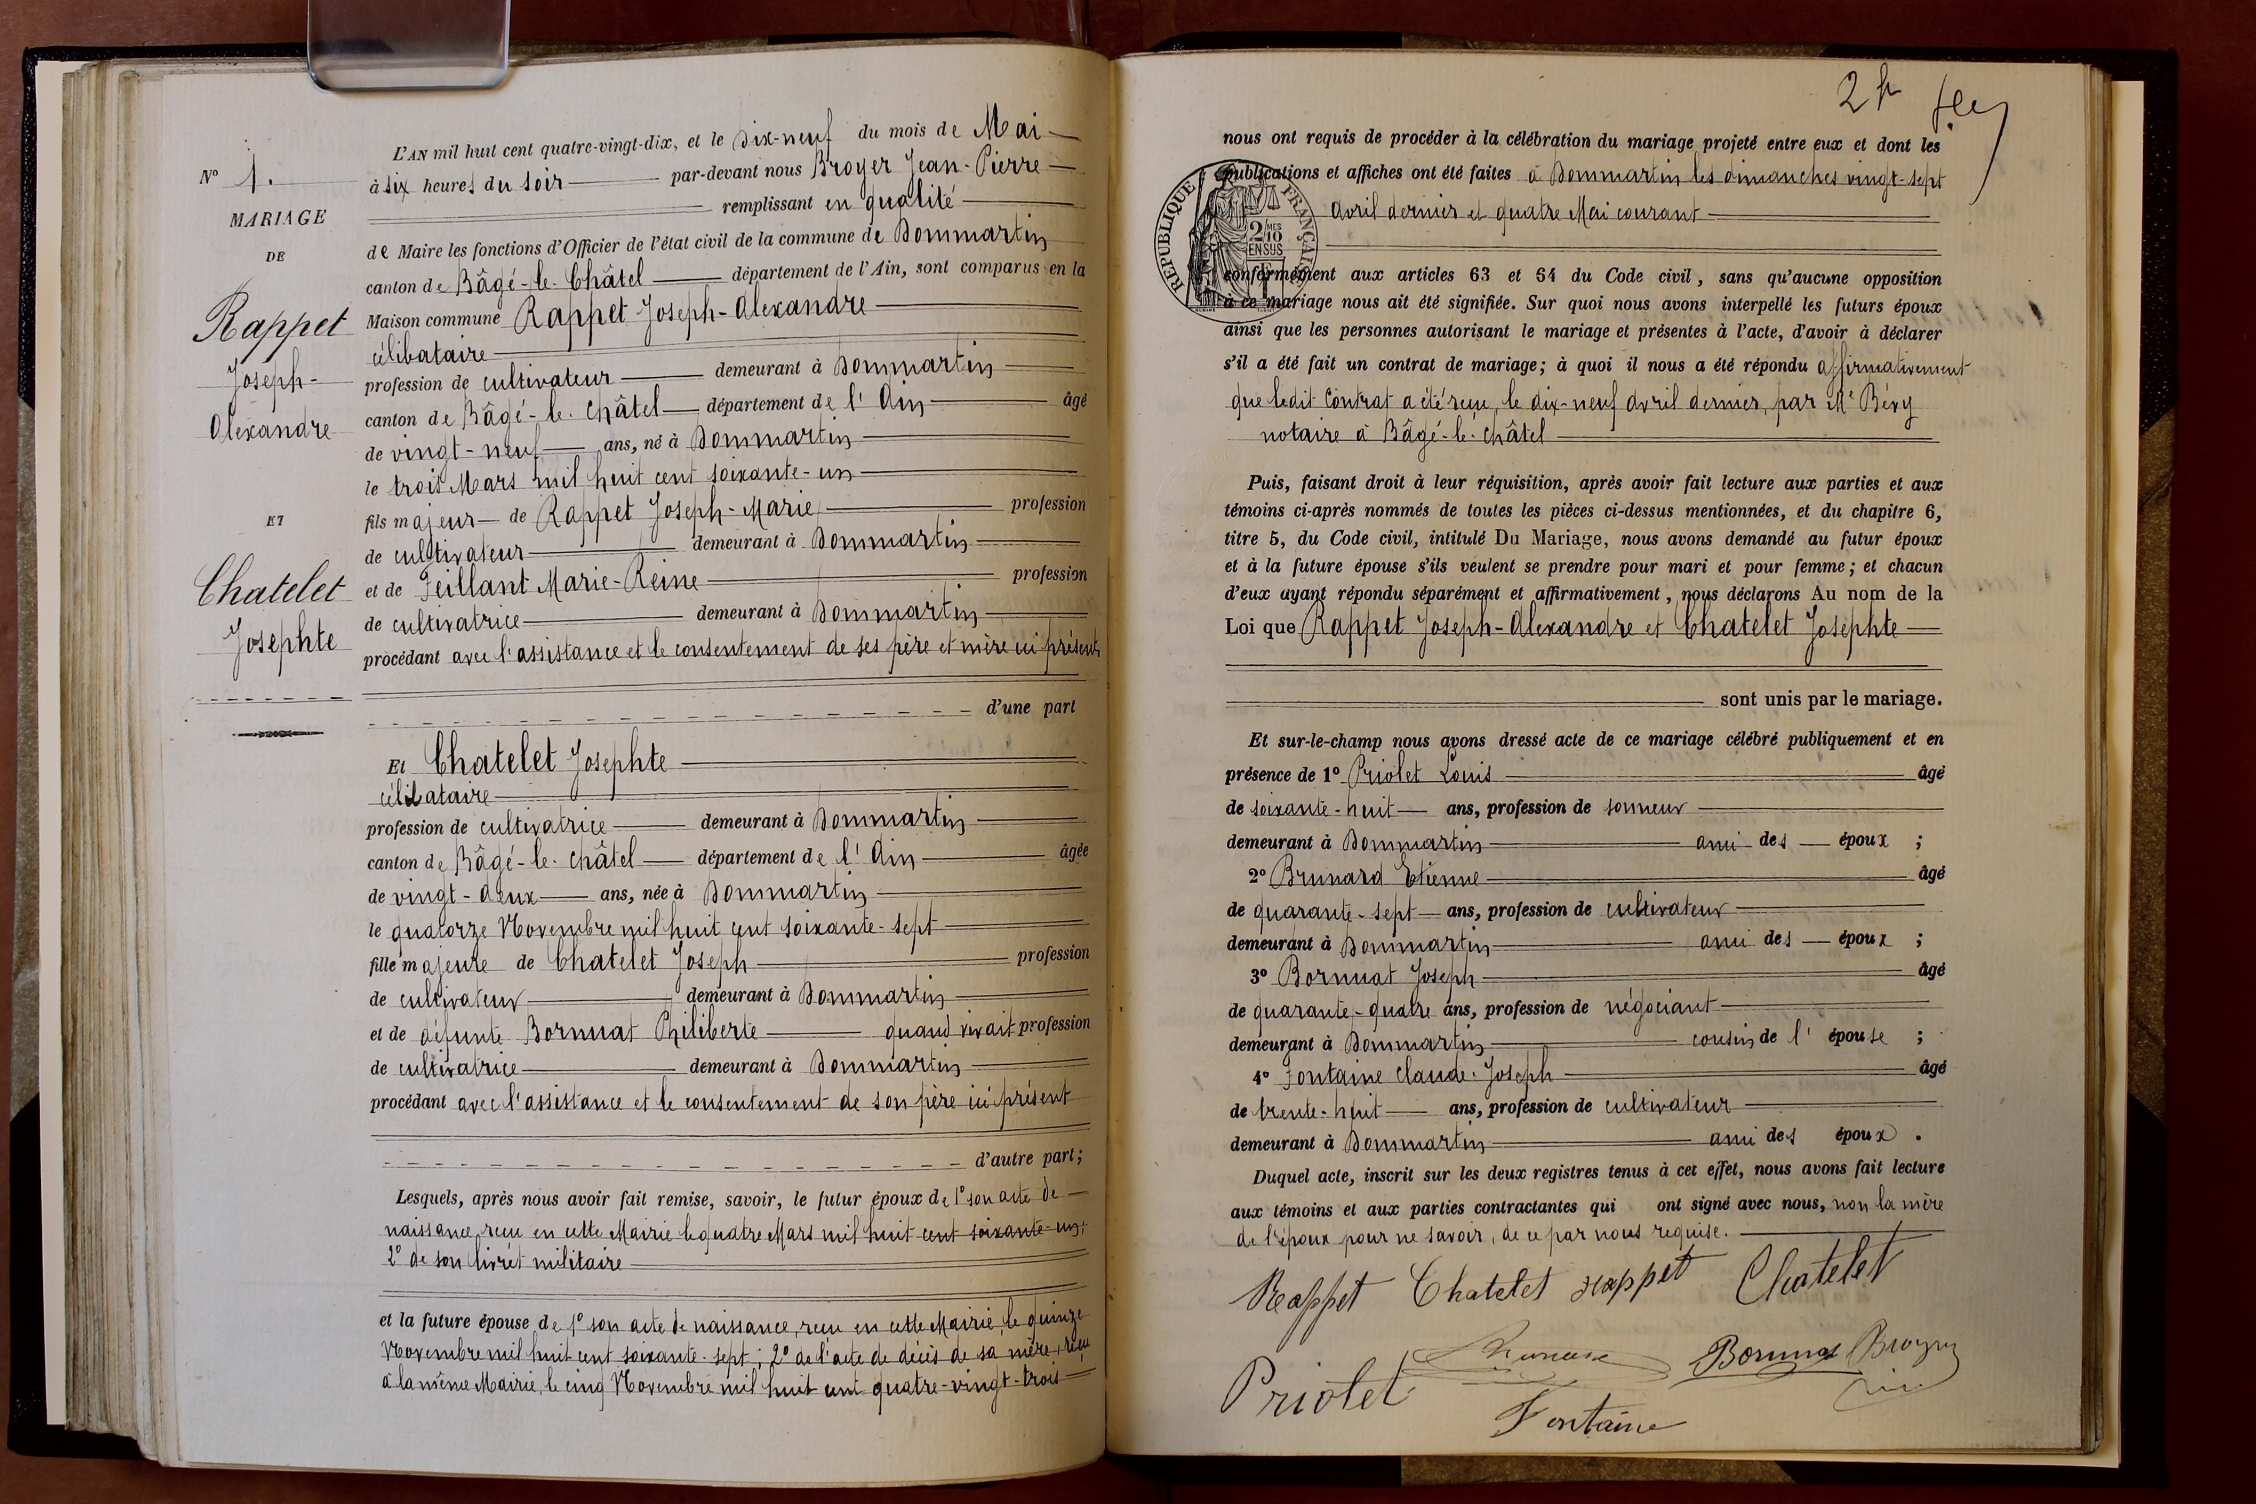 N° 1.
MARIAGE
DE
Rappet
Joseph-
Alexandre
ET
Chatelet
Josephte
L'AN mil huit cent quatre-vingt-dix, et le dix-neuf du mois de Mai
à six heures du soir par-devant nous Broyer Jean-Pierre
remplissant en qualité
de Maire les fonctions d'Officier de l'état civil de la commune de Dommartin
canton de Bâgé-le-Châtel département de l'Ain, sont comparus en la
Maison commune Rappet Joseph-Alexandre
célibataire
profession de cultivateur demeurant à Dommartin
canton de Bâgé-le-Châtel département de l'Ain âgé
de vingt-neuf ans, né à Dommartin
le trois Mars mil huit cent soixante-un
fils majeur de Rappet Joseph-Marie profession
de cultivateur demeurant à Dommartin
et de Feillant Marie-Reine profession
de cultivatrice demeurant à Dommartin
procédant avec l'assistance et le consentement de ses père et mère ici présents
d'une part
Et Chatelet Josephte
célibataire
profession de cultivatrice demeurant à Dommartin
canton de Bâgé-le-Châtel département de l'Ain âgée
de vingt-deux ans, née à Dommartin
le quatorze Novembre mil huit cent soixante-sept
fille majeure de Chatelet Joseph profession
de cultivateur demeurant à Dommartin
et de défunte Bornuat Philiberte quand vivait profession
de cultivatrice demeurant à Dommartin
procédant avec l'assistance et le consentement de son père ici présent
d'autre part;
Lesquels, après nous avoir fait remise, savoir, le futur époux de 1° son acte de
naissance, reçu en cette Mairie le quatre Mars mil huit cent soixante-un;
2° de son livret militaire
et la future épouse de 1° son acte de naissance, reçu en cette Mairie, le quinze
Novembre mil huit cent soixante-sept; 2° de l'acte de décès de sa mère, reçu
à la même Mairie, le cinq Novembre mil huit cent quatre-vingt-trois
nous ont requis de procéder à la célébration du mariage projeté entre eux et dont les
publications et affiches ont été faites à Dommartin les dimanches vingt-sept
avril dernier et quatre Mai courant
REPUBLIQUE FRANÇAISE
2 MES
10
EN SUS
conformément aux articles 63 et 64 du Code civil, sans qu'aucune opposition
à ce mariage nous ait été signifiée. Sur quoi nous avons interpellé les futurs époux
ainsi que les personnes autorisant le mariage et présentes à l'acte, d'avoir à déclarer
s'il a été fait un contrat de mariage; à quoi il nous a été répondu affirmativement
que ledit Contrat a été reçu, le dix-neuf avril dernier, par Me Béry
notaire à Bâgé-le-Châtel
Puis, faisant droit à leur réquisition, après avoir fait lecture aux parties et aux
témoins ci-après nommés de toutes les pièces ci-dessus mentionnées, et du chapitre 6,
titre 5, du Code civil, intitulé Du Mariage, nous avons demandé au futur époux
et à la future épouse s'ils veulent se prendre pour mari et pour femme; et chacun
d'eux ayant répondu séparément et affirmativement, nous déclarons Au nom de la
Loi que Rappet Joseph-Alexandre et Chatelet Josephte
sont unis par le mariage.
Et sur-le-champ nous avons dressé acte de ce mariage célébré publiquement et en
présence de 1° Priolet Louis âgé
de soixante-huit ans, profession de sonneur
demeurant à Dommartin ami des époux ;
2° Brunard Etienne âgé
de quarante-sept ans, profession de cultivateur
demeurant à Dommartin ami des époux ;
3° Bornuat Joseph âgé
de quarante-quatre ans, profession de négociant
demeurant à Dommartin cousin de l'épouse ;
4° Fontaine Claude-Joseph âgé
de trente-huit ans, profession de cultivateur
demeurant à Dommartin ami des époux .
Duquel acte, inscrit sur les deux registres tenus à cet effet, nous avons fait lecture
aux témoins et aux parties contractantes qui ont signé avec nous, non la mère
de l'époux pour ne savoir, de ce par nous requise.
Rappet Chatelet rappet Chatelet
Bornuat Broyer
Priolet
Fontaine